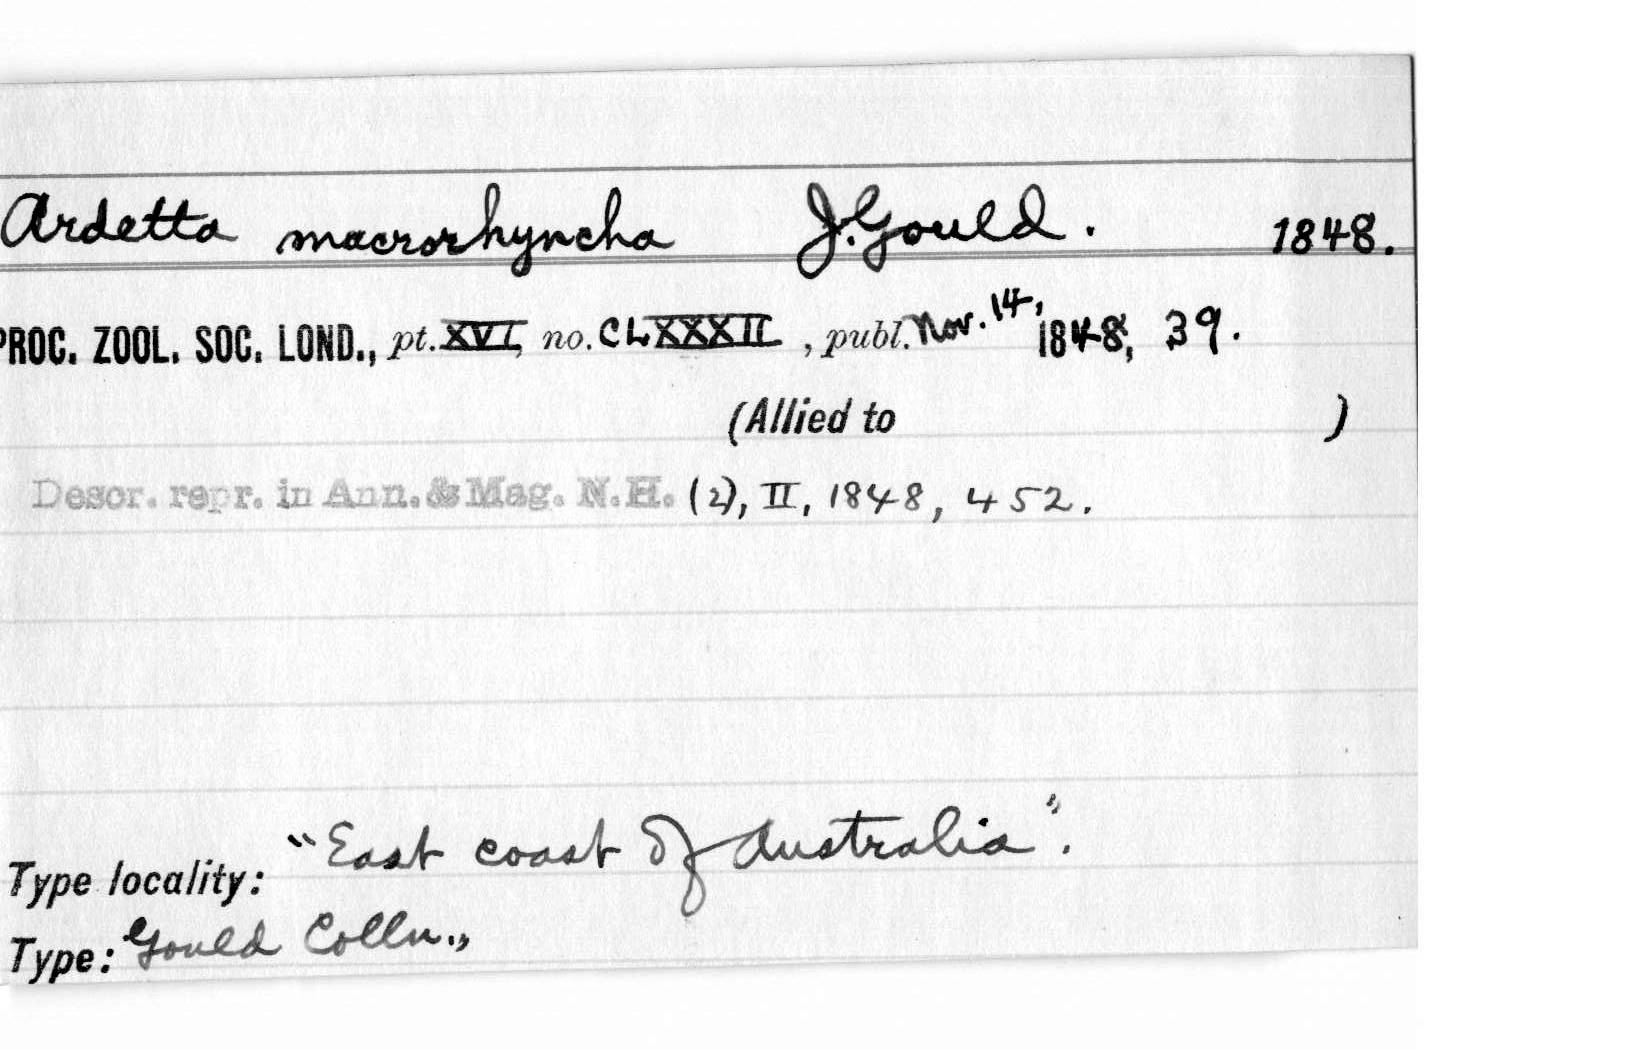 Ardetta macrorhyncha J. Gould. 1848.
PROC. ZOOL. SOC. LOND., pt. XVI, no. CLXXXII , publ. Nov. 14, 1848, 39.
(Allied to )
Descr. repr. in Ann. & Mag. N.H. (2), II, 1848, 452.
Type locality: "East coast of Australia".
Type: "Gould Colln.,,